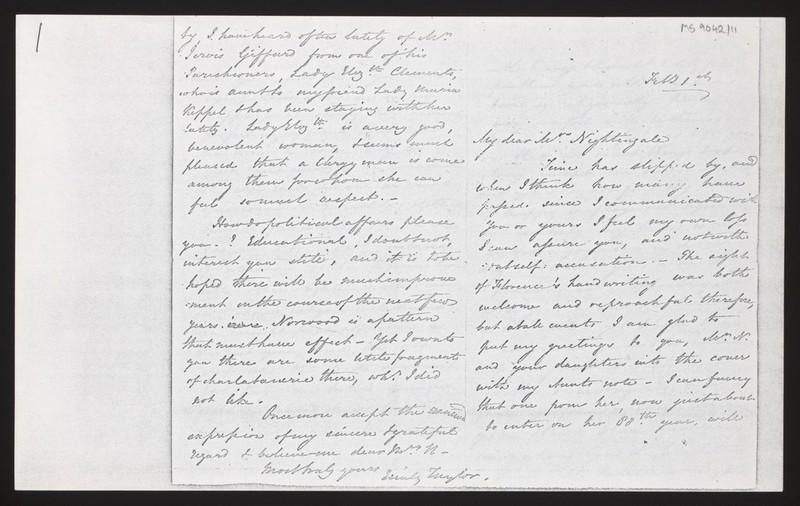 MS 9042/11
by, I have heard often lately of Mr.
Jervis Giffard from one of his
Parishioners, Lady Elizth. Clements,
who is aunt to my friend Lady Maria
Keppel & has been staying with her
lately. Lady Elizth. is a very good,
benevolent woman, & seems much
pleased that a Clergyman is come
among them for whom she can
feel so much respect. –
How do political affairs please
you – ? Educational, I doubt not,
interest you still, and it is to be
hoped there will be much improve
ment in the course of the next few
years. Norwood is a pattern
that must have effect – Yet I own to
you there are some little fragments
of charlatanerie there, wh. I did
not like –
Once more accept the
expression of my sincere & grateful
regard & believe me dear Mrs. N –
Most truly yours Emily Taylor.
Feb 1st
My dear Mrs. Nightingale
Time has slipp.d by, and
when I think how many have
passed since I communicated with
you or yours I feel my own loss
I can assure you, and not with
out self-accusation. – The sight
of Florence's handwriting was both
welcome and reproachful therefore,
but at all events I am glad to
put my greetings to you, Mr. N.
and your daughters into the cover
with my Aunts note – I can fancy
that one from her, now just about
to enter on her 88th year, will